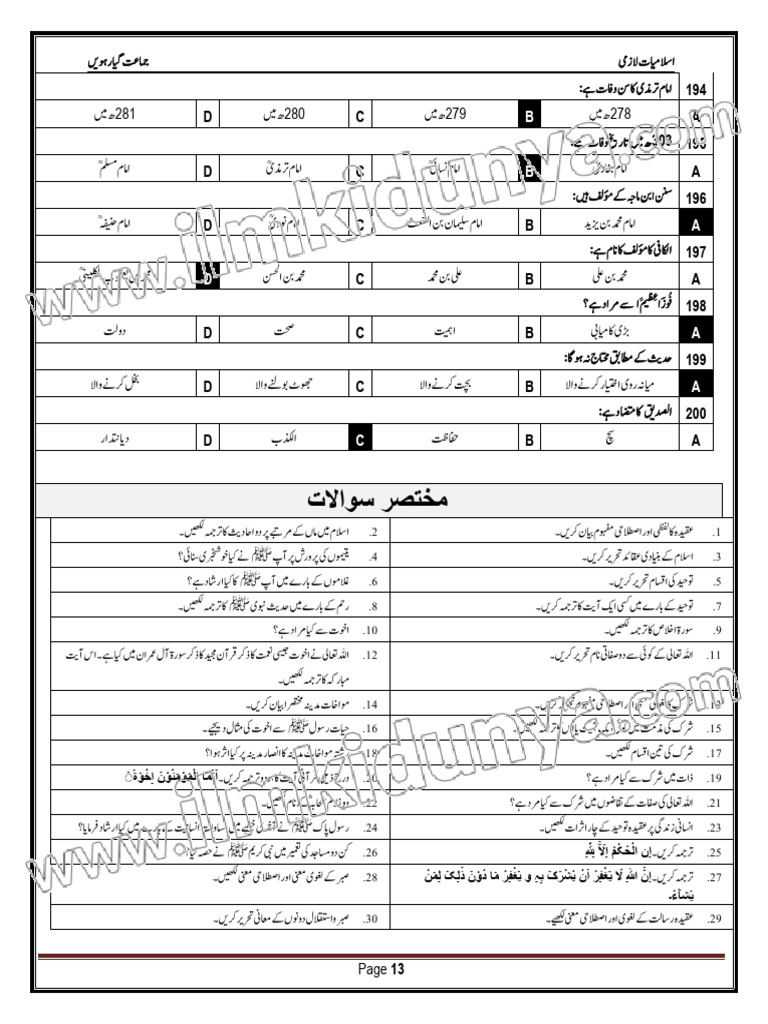 اسلامیات لازمی
جماعت گیارہویں
194 امام ترمذی کا سن وفات ہے:
A 278ھ میں B 279ھ میں C 280ھ میں D 281ھ میں
195 303ھ میں تاریخ وفات ہے:
A امام بخاریؒ B امام نسائیؒ C امام ترمذیؒ D امام مسلمؒ
196 سنن ابن ماجہ کے مؤلف ہیں:
A امام محمد بن یزید B امام سلیمان بن C امام نوویؒ D امام حنیفہؒ
197 الکافی کا مؤلف کا نام ہے:
A محمد بن علی B علی بن محمد C محمد بن الحسن D محمد بن یعقوب الکلینیؒ
198 فَوْزًا عَظِیْمًا سے مراد ہے؟
A بڑی کامیابی B اہمیت C صحت D دولت
199 حدیث کے مطابق محتاج نہ ہوگا:
A میانہ روی اختیار کرنے والا B بچت کرنے والا C جھوٹ بولنے والا D بخل کرنے والا
200 الصدیق کا متضاد ہے:
A سچ B حفاظت C الکذب D دیانتدار
مختصر سوالات
1. عقیدہ کا لفظی اور اصطلاحی مفہوم بیان کریں۔
2. اسلام میں ماں کے مرتبے پر دو احادیث کا ترجمہ لکھیں۔
3. اسلام کے بنیادی عقائد تحریر کریں۔
4. یتیموں کی پرورش پر آپ ﷺ نے کیا خوشخبری سنائی؟
5. توحید کی اقسام تحریر کریں۔
6. غلاموں کے بارے میں آپ ﷺ کا کیا ارشاد ہے؟
7. توحید کے بارے میں کسی ایک آیت کا ترجمہ کریں۔
8. رحم کے بارے میں حدیث نبوی ﷺ کا ترجمہ لکھیں۔
9. سورۃ اخلاص کا ترجمہ لکھیں۔
10. اخوت سے کیا مراد ہے؟
11. اللہ تعالیٰ کے کوئی سے دو صفاتی نام تحریر کریں۔
12. اللہ تعالیٰ نے اخوت جیسی نعمت کا ذکر قرآن مجید کا ذکر سورۃ آل عمران میں کیا ہے۔ اس آیت
مبارکہ کا ترجمہ لکھیں۔
13. شرک کا لغوی معنی اور اصطلاحی مفہوم تحریر کریں۔
14. مواخات مدینہ مختصرا بیان کریں۔
15. شرک کی مذمت میں ترجمہ لکھیں۔
16. حیات رسول ﷺ سے اخوت کی مثال دیجیے۔
17. شرک کی تین اقسام لکھیں۔
18. رشتہ مواخات مدینہ کا انصار مدینہ پر کیا اثر ہوا؟
19. ذات میں شرک سے کیا مراد ہے؟
20. درج ذیل قرآنی آیت کا اردو ترجمہ کریں۔ اِنَّمَا الْمُؤْمِنُوْنَ اِخْوَۃٌ
21. اللہ تعالیٰ کی صفات کے تقاضوں میں شرک سے کیا مراد ہے؟
22. دو غلام صحابہ کے نام لکھیں۔
23. انسانی زندگی پر عقیدہ توحید کے چار اثرات لکھیں۔
24. رسول پاک ﷺ نے خطبے میں مساوات انسانیت کے بارے میں کیا ارشاد فرمایا؟
25. ترجمہ کریں۔ اِنِ الْحُکْمُ اِلَّا لِلّٰہِ
26. کن دو مساجد کی تعمیر میں نبی کریم ﷺ نے حصہ لیا؟
27. ترجمہ کریں۔ اِنَّ اللّٰہَ لَا یَغْفِرُ اَنْ یُّشْرَکَ بِہٖ وَ یَغْفِرُ مَا دُوْنَ ذٰلِکَ لِمَنْ
یَّشَآءُ۔
28. صبر کے لغوی معنی اور اصطلاحی معنی لکھیں۔
29. عقیدہ رسالت کے لغوی اور اصطلاحی معنی لکھیے۔
30. صبر و استقلال دونوں کے معانی تحریر کریں۔
Page 13
www.ilmkidunya.com
www.ilmkidunya.com